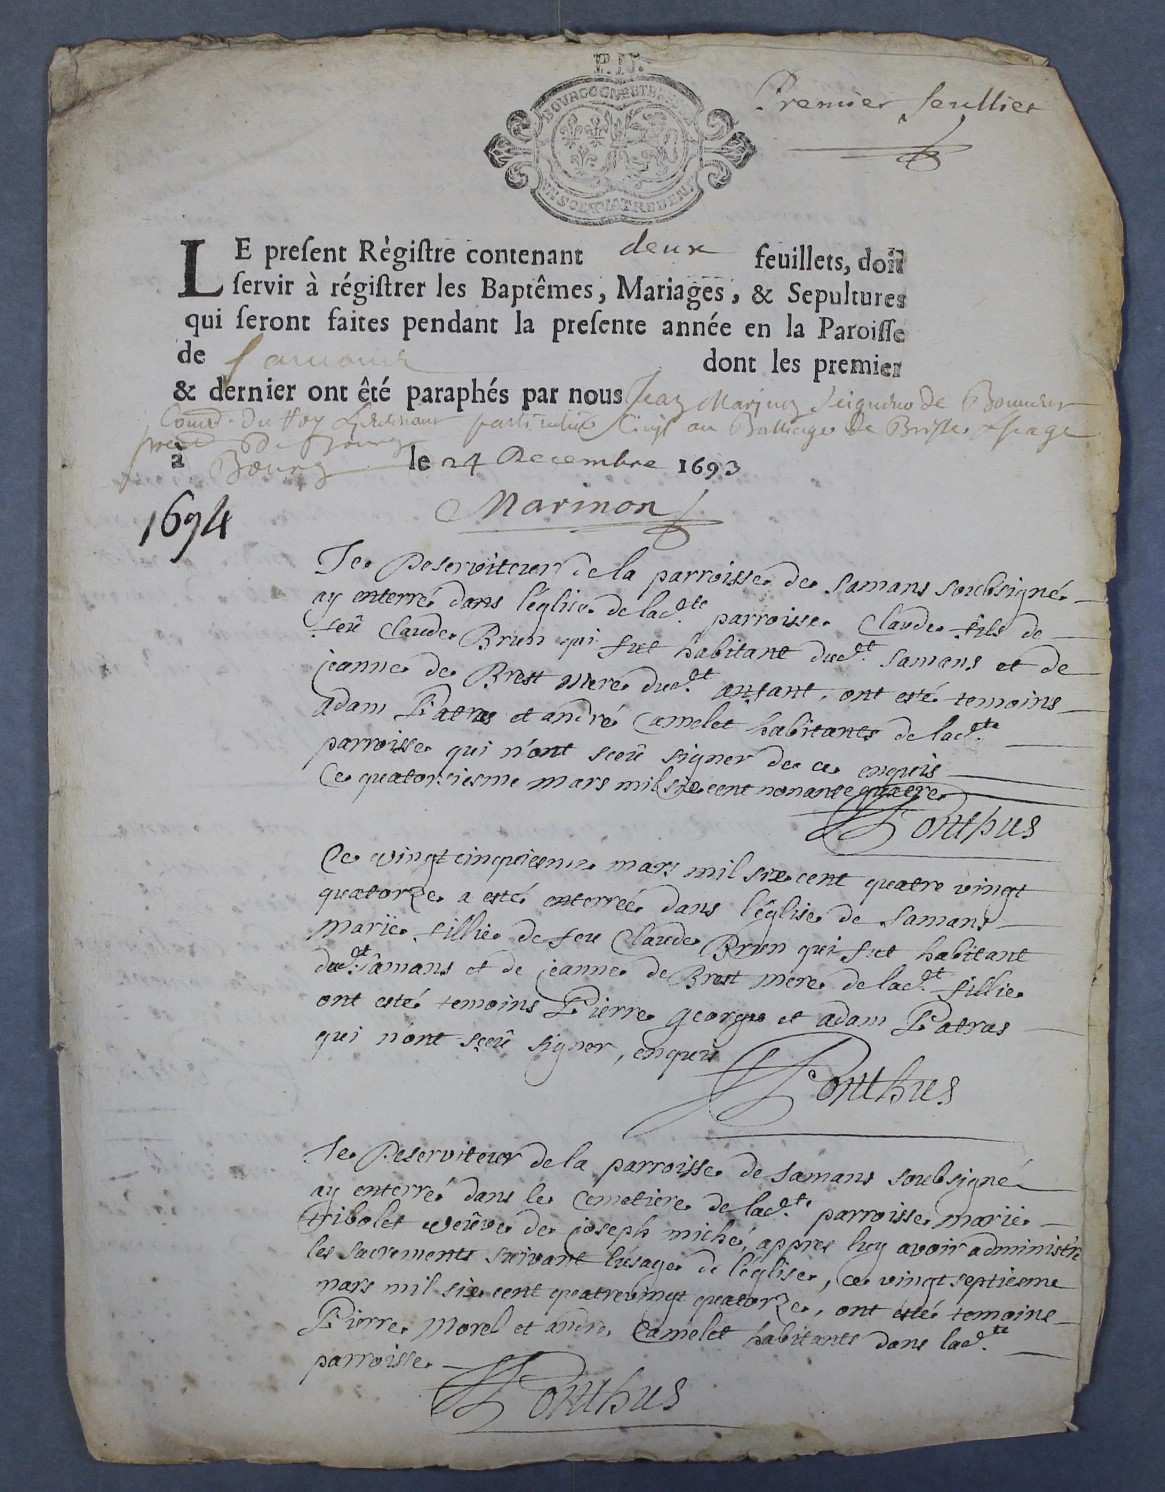 P. IV.
BOURGOGNE ET BRESSE
Premier feullier
LE preſent Régiſtre contenant deux feuillets, doit
ſervir à régiſtrer les Baptêmes, Mariages, & Sepultures
qui ſeront faites pendant la preſente année en la Paroiſſe
de Samans dont les premier
& dernier ont êté paraphés par nous Jean Marinon Seigneur de
Con.er du Roy Lieutenant particulier Civil au Balliage de Bresse &
de Bourg
à Bourg le 24 Decembre 1693
Marinon
1694
Je Deserviteur de la parroisse de Samans soubsigné
ay enterré dans l'église de lad.te parroisse Claude fils de
feû Claude Brun qui fut habitant dud.t Samans et de
jeanne de Brest mere dud.t anfant, ont esté temoins
adam Patras et andré Camelet habitants de lad.te
parroisse qui n'ont sceû signer de ce enquis
Ce quatorsiesme mars mil six cent nonante quatre
Ponthus
Ce vingt cinquiesme mars mil six cent quatre vingt
quatorze a esté enterrée dans l'église de Samans
marie fillie de feu Claude Brun qui fut habitant
dud.t Samans et de jeanne de Brest mere de lad.t fillie
ont esté temoins Pierre george et adam Patras
qui n'ont sceû signer, enquis
Ponthus
Je Deserviteur de la parroisse de Samans soubsigné
ay enterré dans le Cemetiere de lad.te parroisse marie
tribolet veûve de joseph miché, appres luy avoir administré
les sacrements suivant l'usage de l'église, ce vingt septiesme
mars mil six cent quatre vingt quatorze, ont esté temoins
Pierre Morel et andre Camelet habitants dans lad.te
parroisse
Ponthus